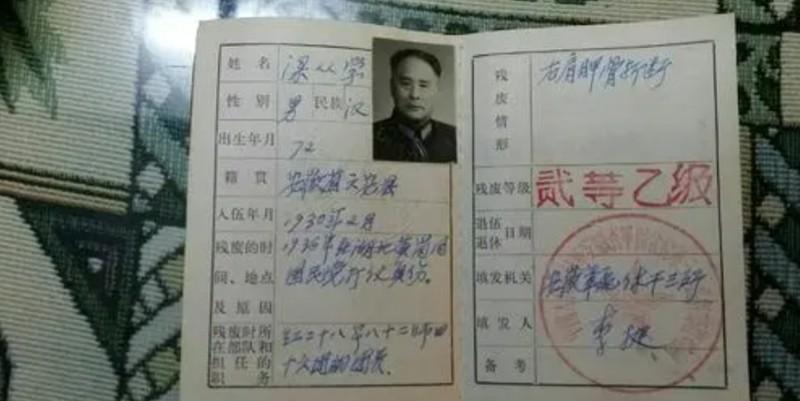 姓名 梁从学
性别 男 民族 汉
出生年月 72
籍贯 安徽 六安县
入伍年月 1930年2月
残废的时 1935年在湖北黄冈同
间、地点 国民党打仗负伤。
及原因
残废时所 红二十八军八十二师四
在部队和 十六团 团长
担任的
职务
残废情形 右肩胛骨折断
残废等级 贰等乙级
退伍
退休 日期
填发机关 安徽军区休干三所
填发人 李
备考